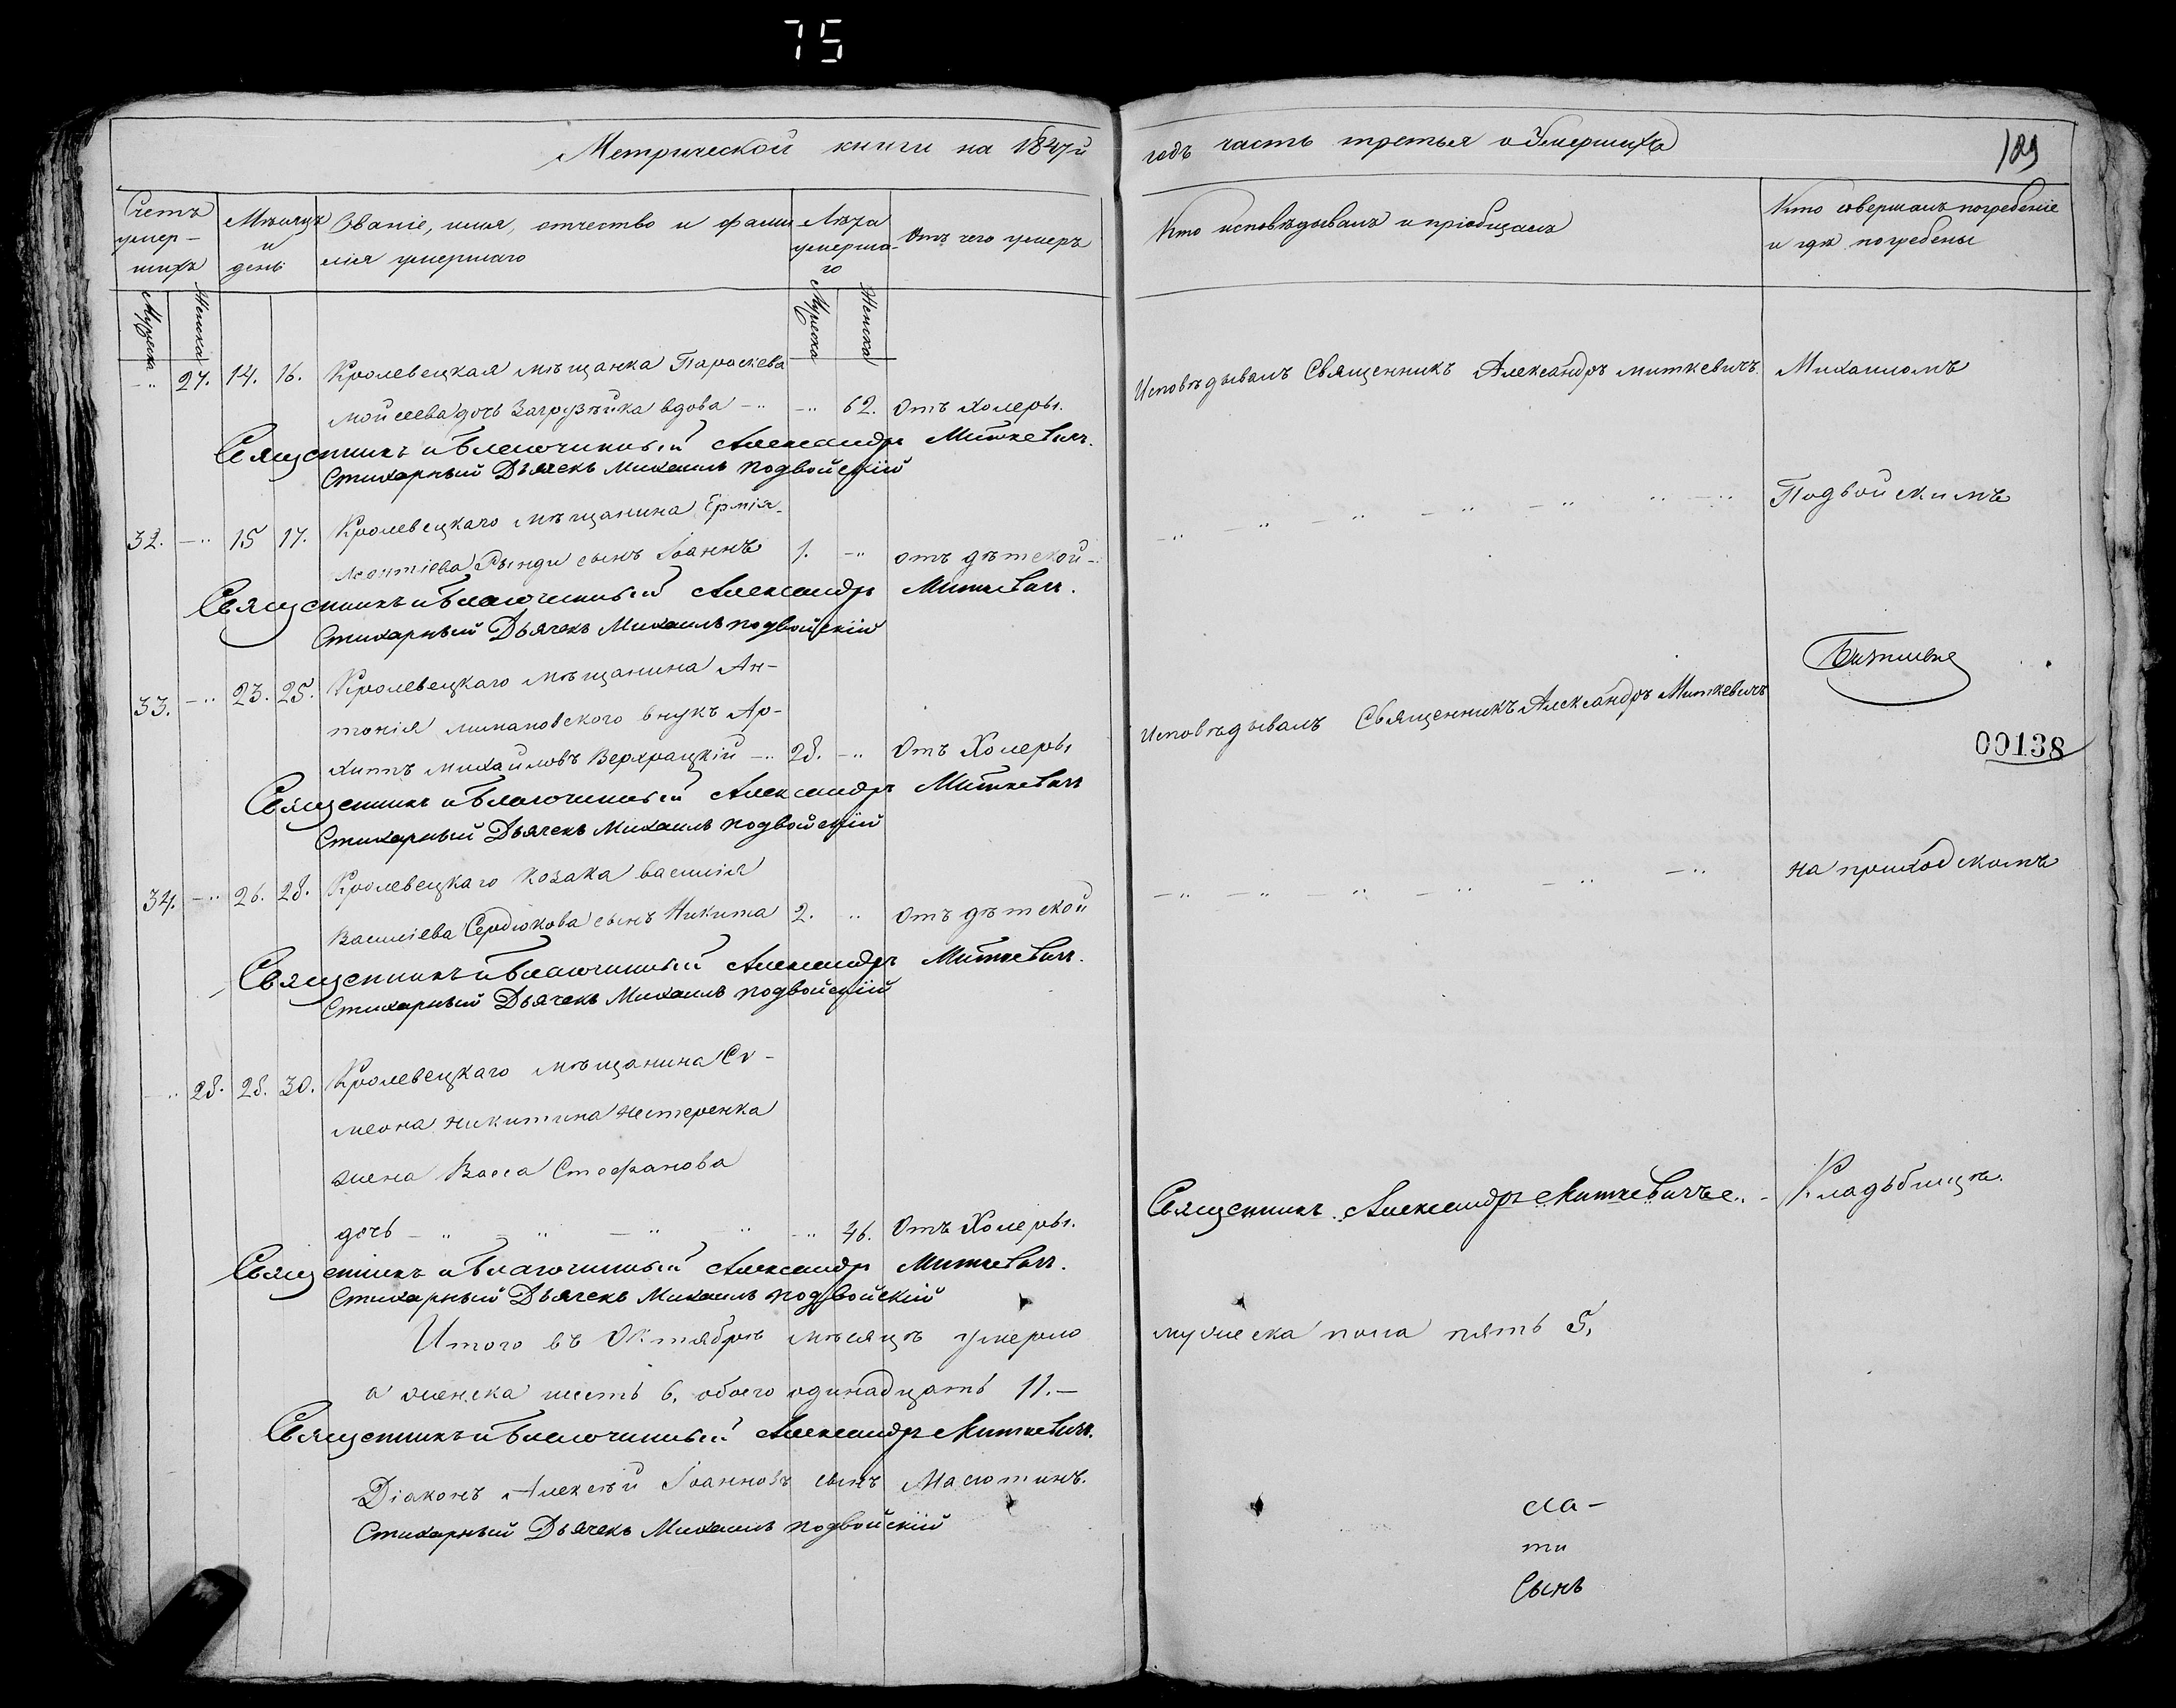 75
Метрической книги на 1847й
годъ часть третья о Умершихъ
189
Счетъ умер-шихъ
Мѣсяцъ и день
Званіе, имя, отчество и фами
лія умершаго
Лѣта умерша-го
Отъ чего умеръ
Кто исповѣдывалъ и пріобщалъ
Кто совершалъ погребеніе
и гдѣ погребены
Мужеска
Женска
Мужеска
Женска
-„ 27. 14. 16. Кролевецкая мѣщанка Параскева
Мойсеева дочь Загрузѣйка вдова -„ -„ 62. Отъ холеры.
Исповѣдывалъ Священникъ Александръ Миткевичъ.
Михаиломъ
Священникъ и Благочинный Александръ Миткевичъ.
Стихарный Дьячекъ Михаилъ Подвойскій
32. -„ 15 17. Кролевецкаго мѣщанина
Леонтіева Рынди сынъ Іоаннъ 1. -„ отъ дѣтской -
Подвойскимъ
Священникъ и Благочинный Александръ Миткевичъ.
Стихарный Дьячекъ Михаилъ Подвойскій
33. -„ 23. 25. Кролевецкаго мѣщанина Ан-
тонія внукъ Ар-
хипъ Михайловъ Верхрацкій -„ 28. -„ Отъ Холеры
Исповѣдывалъ Священникъ Александръ Миткевичъ
00138
Священникъ и Благочинный Александръ Миткевичъ
Стихарный Дьячекъ Михаилъ Подвойскій
34. -„ 26. 28. Кролевецкаго козака Василія
Василіева Сердюкова сынъ Никита 2. „ Отъ дѣтской
на приходскомъ
Священникъ и Благочинный Александръ Миткевичъ.
Стихарный Дьячекъ Михаилъ Подвойскій
-„ 28. 28. 30. Кролевецкаго мѣщанина Си-
меона Никитина Нестеренка
жена Васса Стефанова
дочь - „ „ - „ „ -„ 46. Отъ Холеры.
Священникъ Александръ Миткевичъ
Кладьбищѣ.
Священникъ и Благочинный Александръ Миткевичъ.
Стихарный Дьячекъ Михаилъ Подвойскій
Итого въ Октябрѣ мѣсяцѣ умерло
мужеска пола пять 5,
а женска шесть 6, обоего одинадцать 11.-
Священникъ и Благочинный Александръ Миткевичъ.
Діаконъ Алексѣй Іоанновъ сынъ Масютинъ.
Стихарный Дьячекъ Михаилъ Подвойскій
ла-
ти
Сынъ